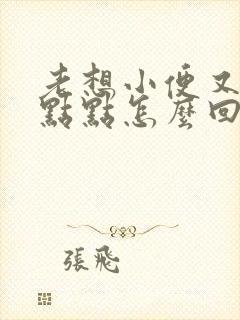 老想小便又
點點怎麼回
張飛